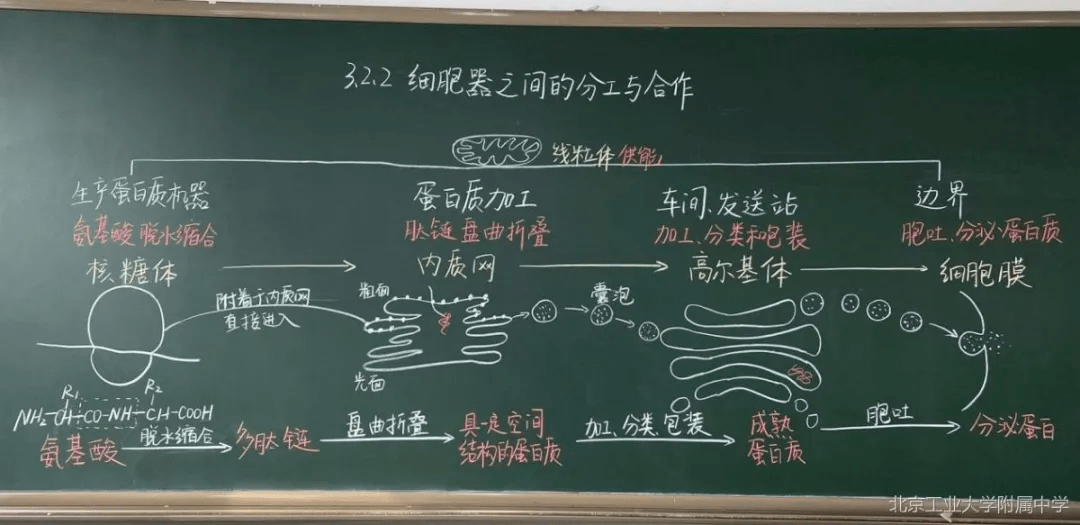 3.2.2 细胞器之间的分工与合作
线粒体供能
生产蛋白质机器
蛋白质加工
车间、发送站
边界
氨基酸脱水缩合
肽链盘曲折叠
加工、分类和包装
胞吐、分泌蛋白质
核糖体
内质网
高尔基体
细胞膜
附着于内质网
直接进入
粗面
囊泡
光面
R₁
R₂
NH₂-CH-CO-NH-CH-COOH
氨基酸
脱水缩合
多肽链
盘曲折叠
具一定空间
结构的蛋白质
加工、分类、包装
成熟
蛋白质
胞吐
分泌蛋白
北京工业大学附属中学